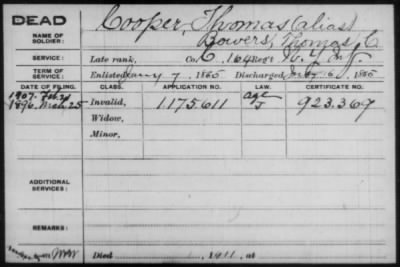 DEAD
NAME OF SOLDIER:
Cooper, Thomas (alias)
Bowers, Thomas, C
SERVICE:
Late rank, Co. C, 164 Reg't N.Y. Inf.
TERM OF SERVICE:
Enlisted Jany 7, 1865 Discharged July 15, 1865
DATE OF FILING.
CLASS.
APPLICATION NO.
LAW.
CERTIFICATE NO.
1907. Feb.
1896. Mch. 25
Invalid,
1.175.611
age
J
923.369
Widow,
Minor,
ADDITIONAL SERVICES:
REMARKS:
Died 1911, at